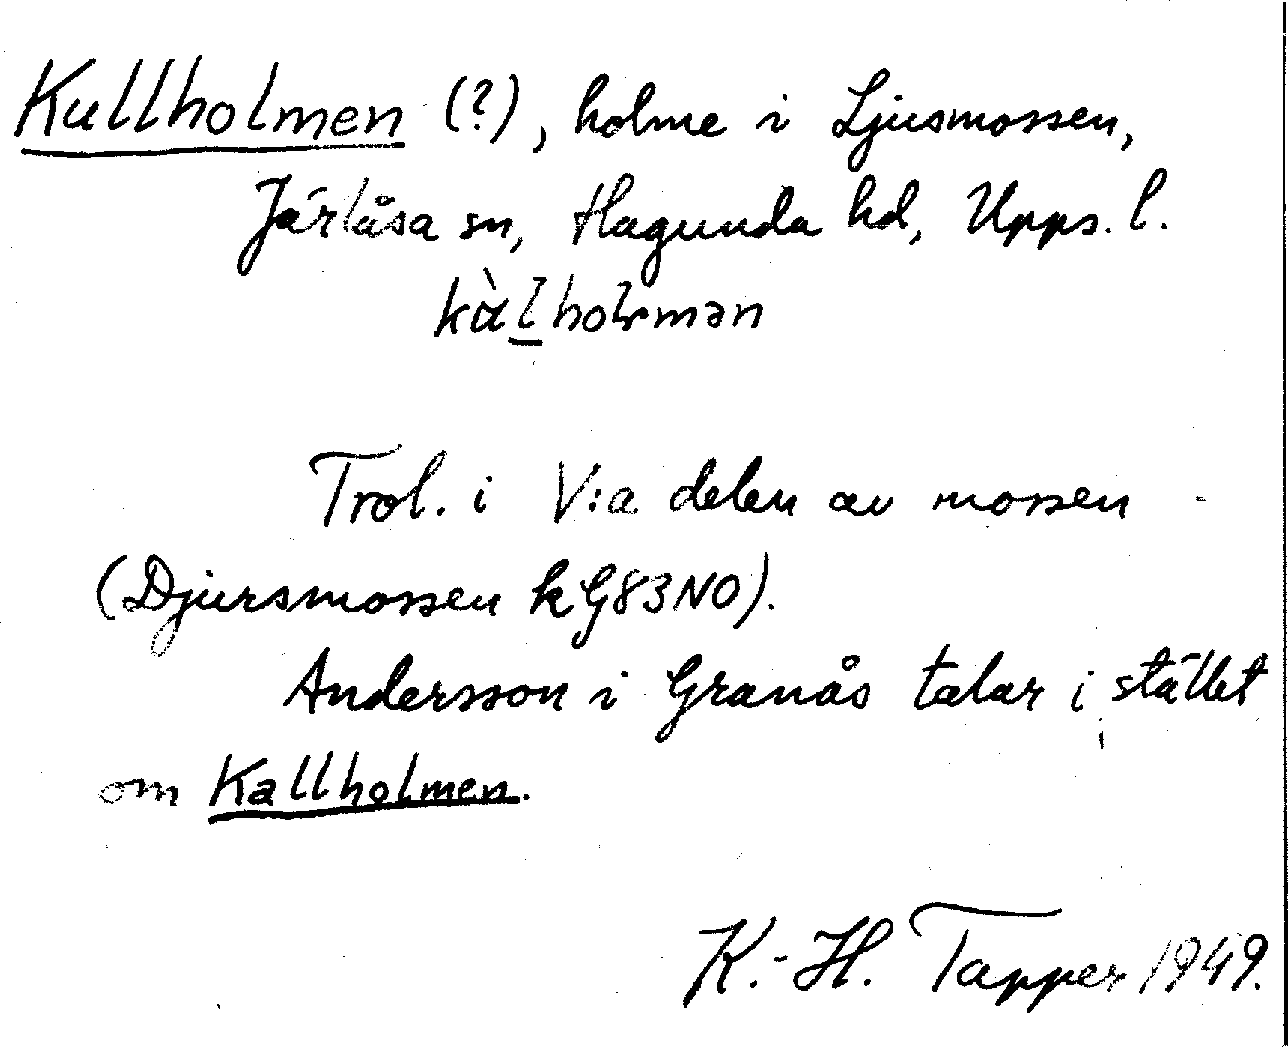 Kullholmen (?), holme i Ljusmossen,
Järlåsa sn, Hagunda hd, Upps. l.
kὰl̲holmən
Trol. i V:a delen av mossen
(Djursmossen kG83NO).
Andersson i Granås talar i stället
om Kallholmen.
K.-H. Tapper 1949.